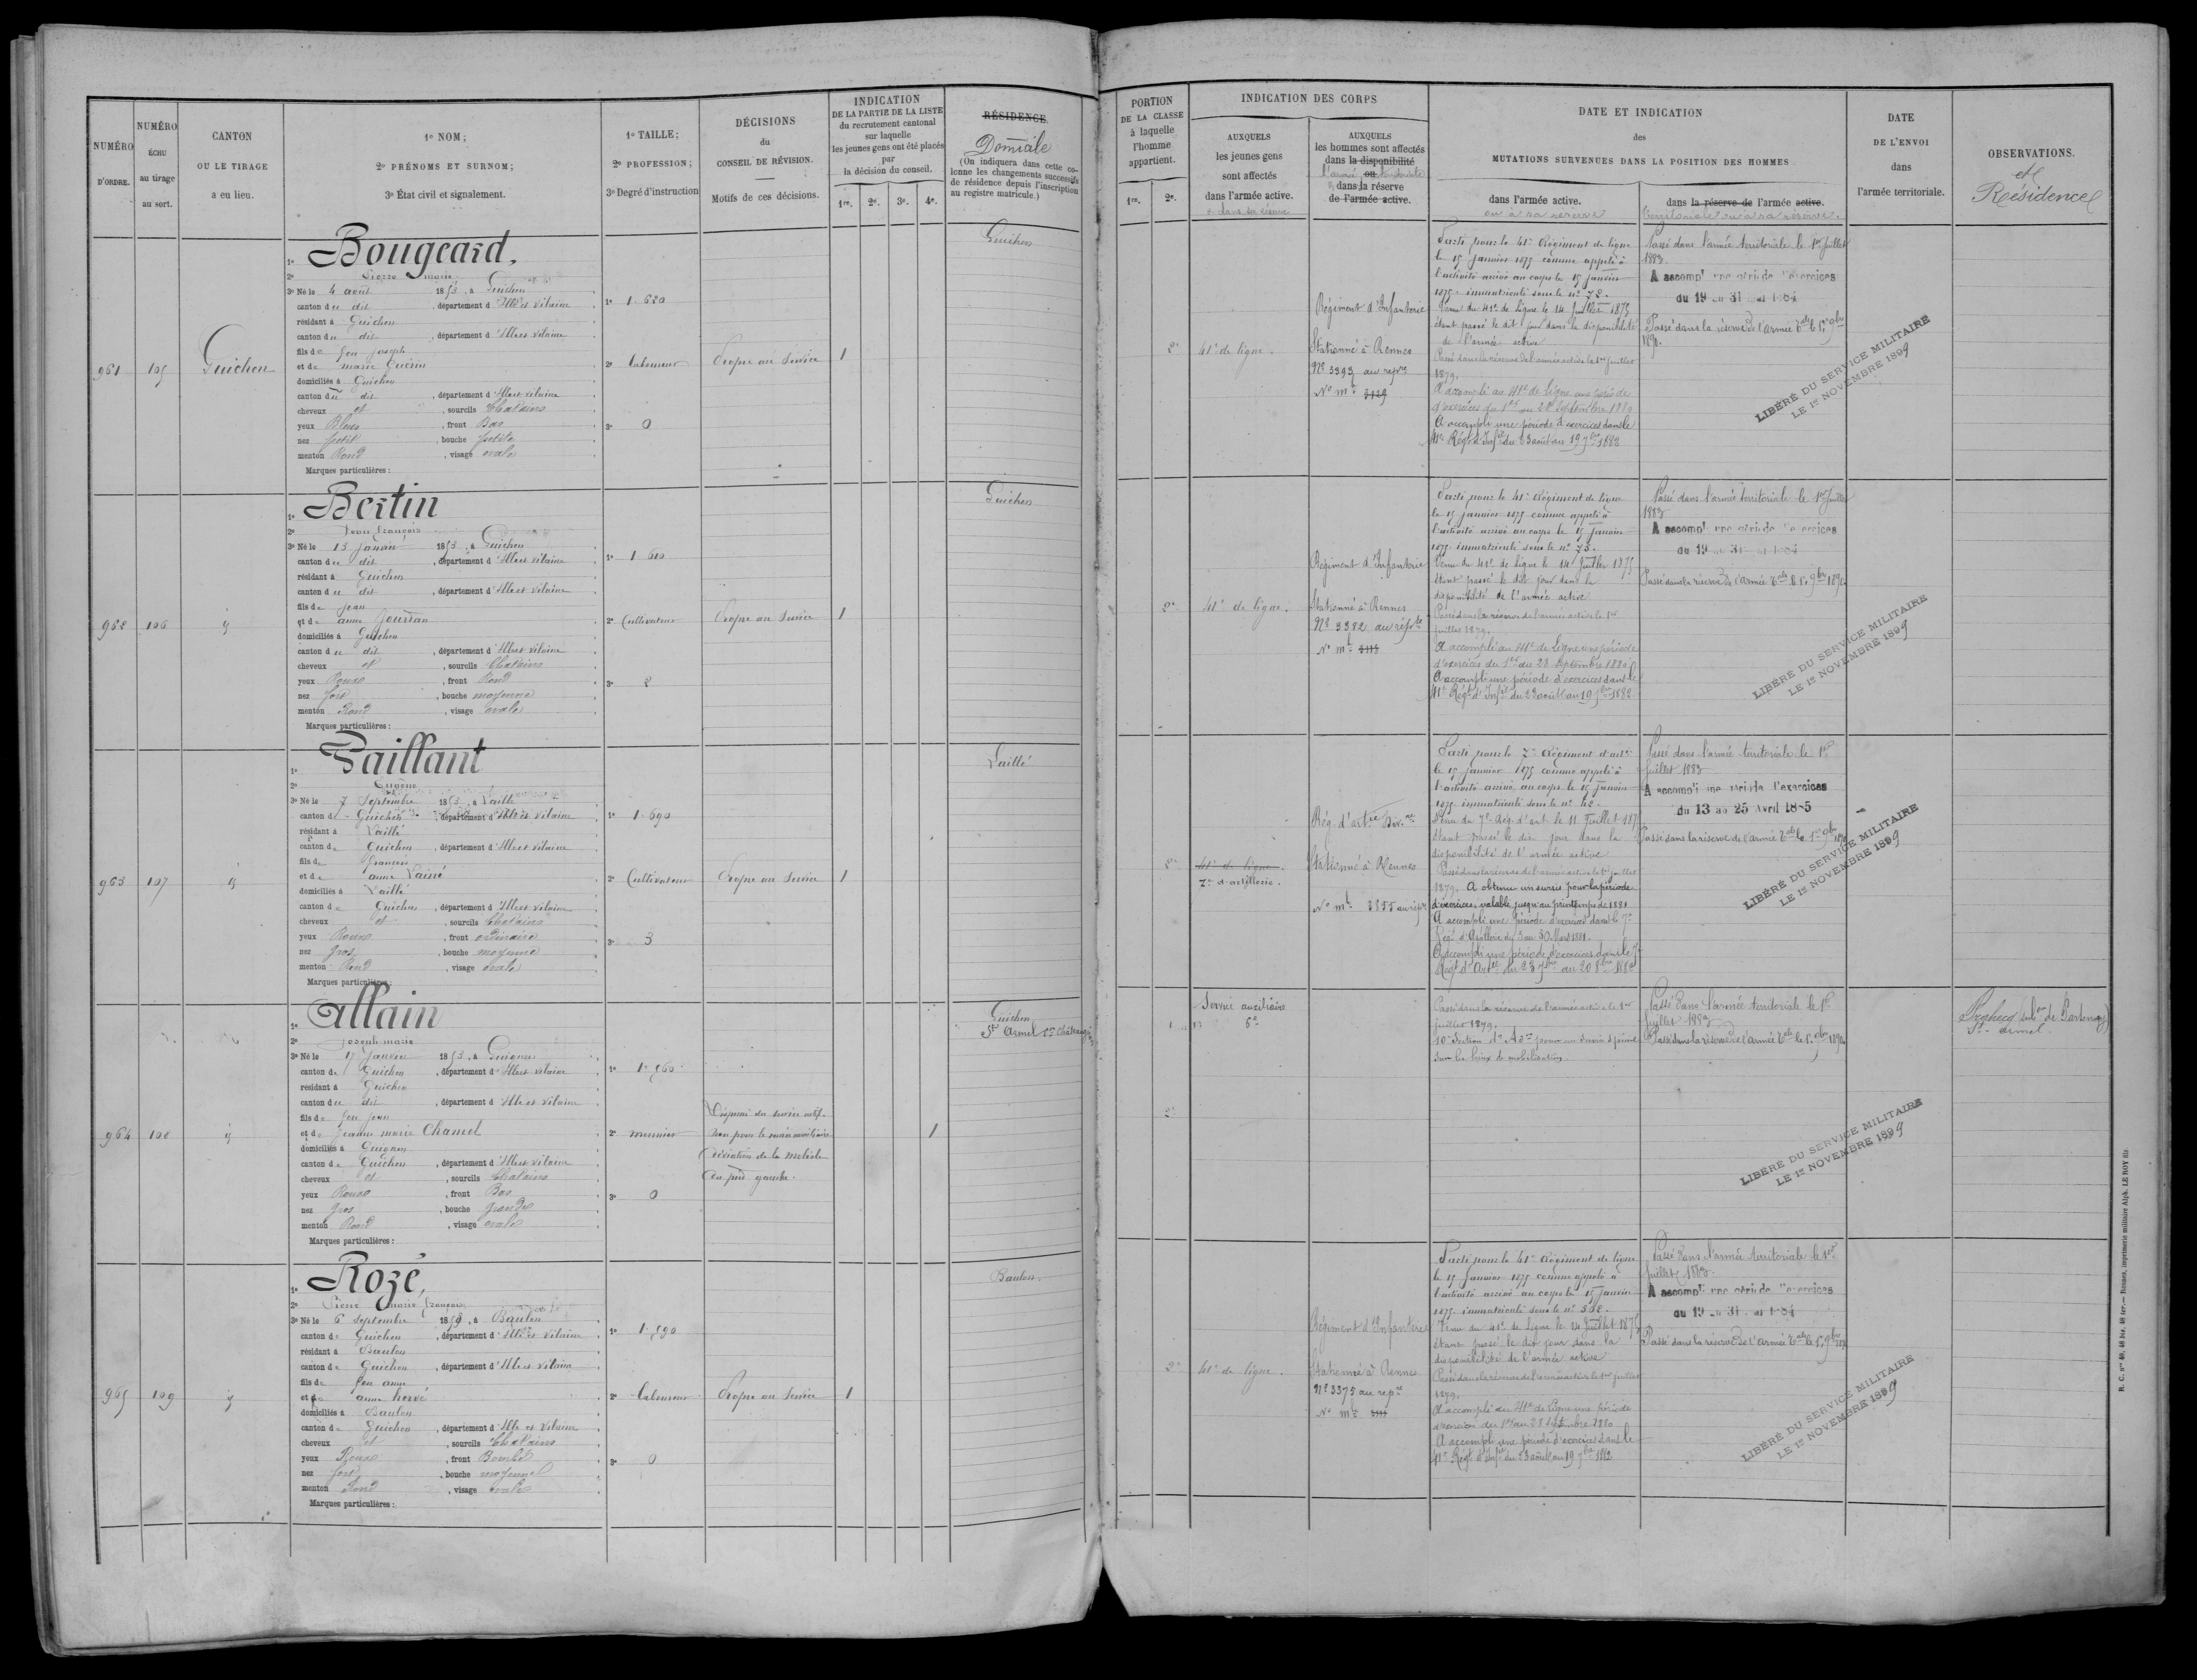 NUMÉRO
D'ORDRE.
NUMÉRO
ÉCHU
au tirage
au sort.
CANTON
OU LE TIRAGE
a eu lieu.
1º NOM;
2º PRÉNOMS ET SURNOM;
3º État civil et signalement.
1º TAILLE;
2º PROFESSION;
3º Degré d'instruction
DÉCISIONS
du
CONSEIL DE RÉVISION.
Motifs de ces décisions.
INDICATION
DE LA PARTIE DE LA LISTE
du recrutement cantonal
sur laquelle
les jeunes gens ont été placés
par
la décision du conseil.
1re. 2e. 3e. 4e.
RÉSIDENCE
Domicile
(On indiquera dans cette co-
lonne les changements successifs
de résidence depuis l'inscription
au registre matricule.)
961
105
Guichen
1º Bougeard,
2º Pierre marie
3º Né le 4 août 1853, à Guichen
canton du dit, département d'Ille et Vilaine
résidant à Guichen
canton du dit, département d'Ille et Vilaine
fils de feu Joseph
et de marie Guérin
domiciliés à Guichen
canton du dit, département d'Ille et Vilaine
cheveux et, sourcils Chatains
yeux Bleus, front Bas
nez petit, bouche petite
menton Rond, visage ovale
Marques particulières:
1º 1.620
2º Laboureur
3º 0
Propre au Service
1
Guichen
962
106
id
1º Bertin
2º Jean françois
3º Né le 13 janvier 1853, à Guichen
canton du dit, département d'Ille et Vilaine
résidant à Guichen
canton du dit, département d'Ille et Vilaine
fils de jean
et de anne Joursan
domiciliés à Guichen
canton du dit, département d'Ille et Vilaine
cheveux et, sourcils Chatains
yeux Roux, front Rond
nez fort, bouche moyenne
menton Rond, visage ovale
Marques particulières:
1º 1.610
2º Cultivateur
3º 2
Propre au Service
1
Guichen
963
107
id
1º Paillant
2º Eugène
3º Né le 7 Septembre 1853, à Laillé
canton de Guichen, département d'Ille et Vilaine
résidant à Laillé
canton de Guichen, département d'Ille et Vilaine
fils de françois
et de anne Lainé
domiciliés à Laillé
canton de Guichen, département d'Ille et Vilaine
cheveux et, sourcils Chatains
yeux Roux, front ordinaire
nez gros, bouche moyenne
menton Rond, visage ovale
Marques particulières:
1º 1.690
2º Cultivateur
3º 3
Propre au Service
1
Laillé
964
108
id
1º Allain
2º Joseph marie
3º Né le 17 Janvier 1853, à Guignen
canton de Guichen, département d'Ille et Vilaine
résidant à Guichen
canton du dit, département d'Ille et Vilaine
fils de feu jean
et de jeanne marie Chanel
domiciliés à Guignen
canton de Guichen, département d'Ille et Vilaine
cheveux et, sourcils Chatains
yeux Roux, front Bas
nez gros, bouche grande
menton Rond, visage ovale
Marques particulières:
1º 1.560
2º meunier
3º 0
Dispensé du service actif
bon pour le service auxiliaire
Déviation de la malléole
du pied gauche.
1
Guichen
St Armel con Châteaugiron
965
109
id
1º Rozé,
2º Pierre marie françois
3º Né le 6 septembre 1853, à Baulon
canton de Guichen, département d'Ille et Vilaine
résidant à Baulon
canton de Guichen, département d'Ille et Vilaine
fils de feu
et de anne hervé
domiciliés à Baulon
canton de Guichen, département d'Ille et Vilaine
cheveux et, sourcils Chatains
yeux Roux, front Bombé
nez fort, bouche moyenne
menton Rond, visage ovale
Marques particulières:
1º 1.590
2º Laboureur
3º 0
Propre au Service
1
Baulon.
PORTION
DE LA CLASSE
à laquelle
l'homme
appartient.
1re. 2e.
INDICATION DES CORPS
AUXQUELS
les jeunes gens
sont affectés
dans l'armée active.
et dans sa réserve
AUXQUELS
les hommes sont affectés
dans la disponibilité
ou
l'armée territoriale
dans la réserve
de l'armée active.
DATE ET INDICATION
des
MUTATIONS SURVENUES DANS LA POSITION DES HOMMES
dans l'armée active.
ou à sa réserve
dans la réserve de l'armée active.
territoriale ou à sa réserve.
DATE
DE L'ENVOI
dans
l'armée territoriale.
OBSERVATIONS.
et
Résidence
2e
41e de ligne.
Régiment d'Infanterie
Stationné à Rennes
Nº 3393 au repre
Nº mle 3129
Parti pour le 41e Régiment de ligne
le 15 janvier 1875 comme appelé à
l'activité arrivé au corps le 15 janvier
1875 immatriculé sous le nº 72.
Venu du 41e de Ligne le 14 Juillet 1875
étant passé le dit jour dans la disponibilité
de l'armée active
Passé dans la réserve de l'armée active le 1er juillet
1879.
A accompli au 41e de Ligne une période
d'exercices du 1er au 28 Septembre 1880
A accompli une période d'exercices dans le
41e Régt d'Infie du 23 août au 19 7bre 1882
Passé dans l'armée territoriale le 1er Juillet
1883.
A accompli une période d'exercices
du 19 au 31 mai 1884
Passé dans la réserve de l'armée Tale le 1er 9bre
1892.
LIBÉRÉ DU SERVICE MILITAIRE
LE 1er NOVEMBRE 1899
2e
41e de ligne.
Régiment d'Infanterie
Stationné à Rennes
Nº 3382 au repre
Nº mle 3118
Parti pour le 41e Régiment de ligne
le 15 janvier 1875 comme appelé à
l'activité arrivé au corps le 15 janvier
1875 immatriculé sous le nº 73.
Venu du 41e de Ligne le 14 Juillet 1875
étant passé le dit jour dans la
disponibilité de l'armée active
Passé dans la réserve de l'armée active le 1er
juillet 1879.
A accompli au 41e de Ligne une période
d'exercices du 1er au 28 Septembre 1880
A accompli une période d'exercices dans le
41e Régt d'Infie du 23 août au 19 7bre 1882
Passé dans l'armée territoriale le 1er Juillet
1883
A accompli une période d'exercices
du 19 au 31 mai 1884
Passé dans la réserve de l'armée Tale le 1er 9bre 1892
LIBÉRÉ DU SERVICE MILITAIRE
LE 1er NOVEMBRE 1899
2e
41e de ligne.
7e d'artillerie.
Rég. d'artie Divre
Stationné à Rennes
Nº mle 3355 au repre
Parti pour le 7e Régiment d'artie
le 15 janvier 1875 comme appelé à
l'activité arrivé au corps le 15 janvier
1875 immatriculé sous le nº 42.
Venu du 7e Rég. d'art le 11 Juillet 1875
étant passé le dit jour dans la
disponibilité de l'armée active
Passé dans la réserve de l'armée active le 1er juillet
1879. A obtenu un sursis pour la période
d'exercices, valable jusqu'au printemps de 1881
A accompli une période d'exercices dans le 7e
Régt d'Artillerie du 3 au 30 Mars 1881.
A accompli une période d'exercices dans le 7e
Régt d'Artie du 23 7bre au 20 8bre 1882
Passé dans l'armée territoriale le 1er
Juillet 1883
A accompli une période d'exercices
du 13 au 25 Avril 1885
Passé dans la réserve de l'armée Tale le 1er 9bre 1892
LIBÉRÉ DU SERVICE MILITAIRE
LE 1er NOVEMBRE 1899
1
2e
Service auxiliaire
6e
Passé dans la réserve de l'armée active le 1er
juillet 1879.
10e Section d'Adon pour un service spécial
dans les lieux de mobilisation.
Passé dans l'armée territoriale le 1er
Juillet 1883
Passé dans la réserve de l'armée Tale le 1er 9bre 1892
St armel
LIBÉRÉ DU SERVICE MILITAIRE
LE 1er NOVEMBRE 1899
2e
41e de ligne.
Régiment d'Infanterie
Stationné à Rennes
Nº 3375 au repre
Nº mle 3111
Parti pour le 41e Régiment de ligne
le 15 janvier 1875 comme appelé à
l'activité arrivé au corps le 15 janvier
1875 immatriculé sous le nº 332.
Venu du 41e de Ligne le 14 Juillet 1875
étant passé le dit jour dans la
disponibilité de l'armée active
Passé dans la réserve de l'armée active le 1er juillet
1879.
A accompli au 41e de Ligne une période
d'exercices du 1er au 28 Septembre 1880
A accompli une période d'exercices dans le
41e Régt d'Infie du 23 août au 19 7bre 1882
Passé dans l'armée territoriale le 1er
Juillet 1883.
A accompli une période d'exercices
du 19 au 31 mai 1884
Passé dans la réserve de l'armée Tale le 1er 9bre 1892
LIBÉRÉ DU SERVICE MILITAIRE
LE 1er NOVEMBRE 1899
R. C. nos 48, 48 bis, 48 ter. — Rennes, imprimerie militaire Alph. LE ROY fils